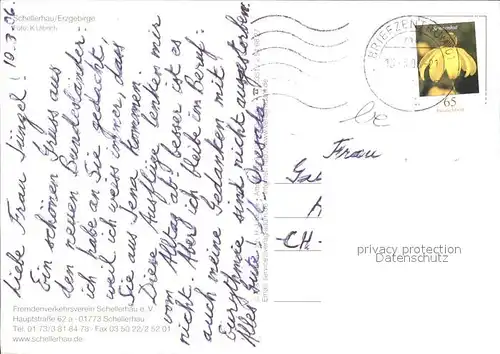 Schellerhau/Erzgebirge
Foto: K.Ullrich
10.3.06.
Liebe Frau Jüngel!
Ein schönen Gruss aus
den neuen Bundesländer
ich habe an Sie gedacht,
weil ich weiss immer, dass
Sie aus Jena kommen.
Diese Ausflüge lenken mir
vom Alltag ab; besser ist es
nicht. Aber ich bleibe im Beruf:
auch meine Gedanken mit
Eurythmie sind nicht ausgestorben.
Alles Gute! L. Quesada
Fremdenverkehrsverein Schellerhau e. V.
Hauptstraße 62 a · 01773 Schellerhau
Tel. 01 73/3 81 84 78 · Fax 03 50 22/2 52 01
www.schellerhau.de
BRIEFZENTRUM
65
Frau
CH-
privacy protection
Datenschutz